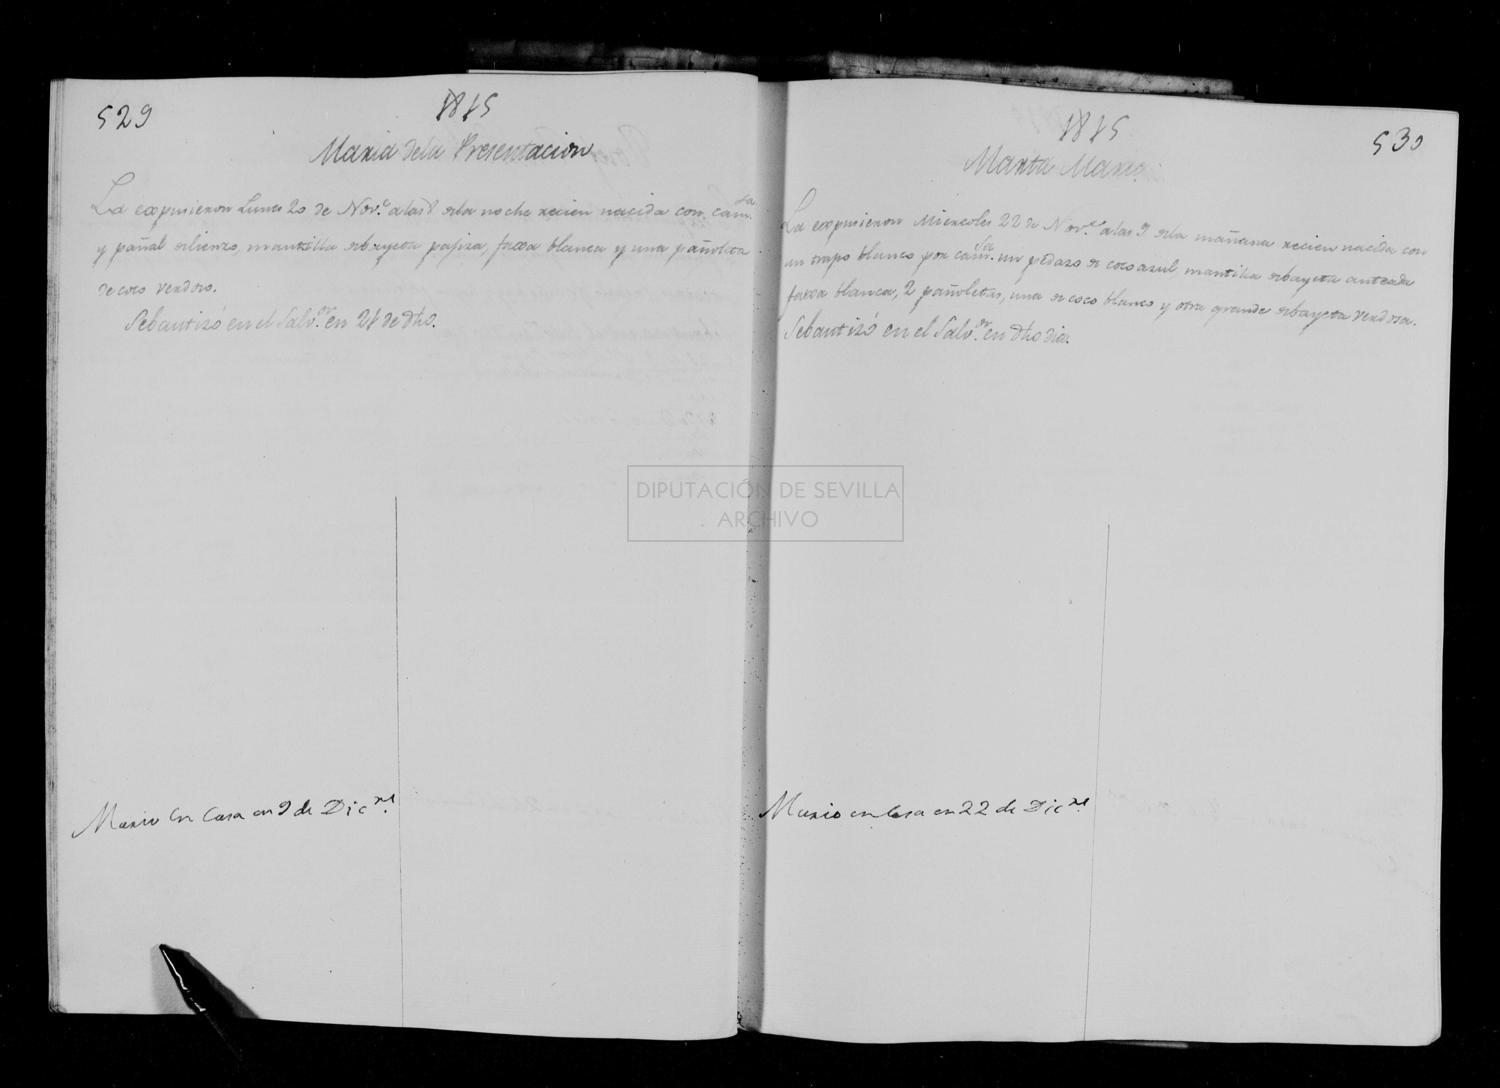 529
1815
Maria dela Presentacion
La expusieron Lunes 20 de Nov.e alas 8 dela noche recien nacida con cam.sa
y pañal delienzo, mantilla debayeta pajiza, faxa blanca y una pañoleta
de coco verdoso.
Sebautizó en el Salv.or en 21 de dho.
Murio En Casa en 9 de Dic.re
1815
530
Marta Maria
La expusieron Miercoles 22 de Nov.e alas 9 dela mañana recien nacida con
un trapo blanco por cam.sa un pedazo de coco azul, mantilla debayeta anteada
faxa blanca, 2 pañoletas, una de coco blanco y otra grande debayeta verdosa.
Sebautizó en el Salv.or en dho dia.
Murio en Casa en 22 de Dic.re
DIPUTACIÓN DE SEVILLA
ARCHIVO